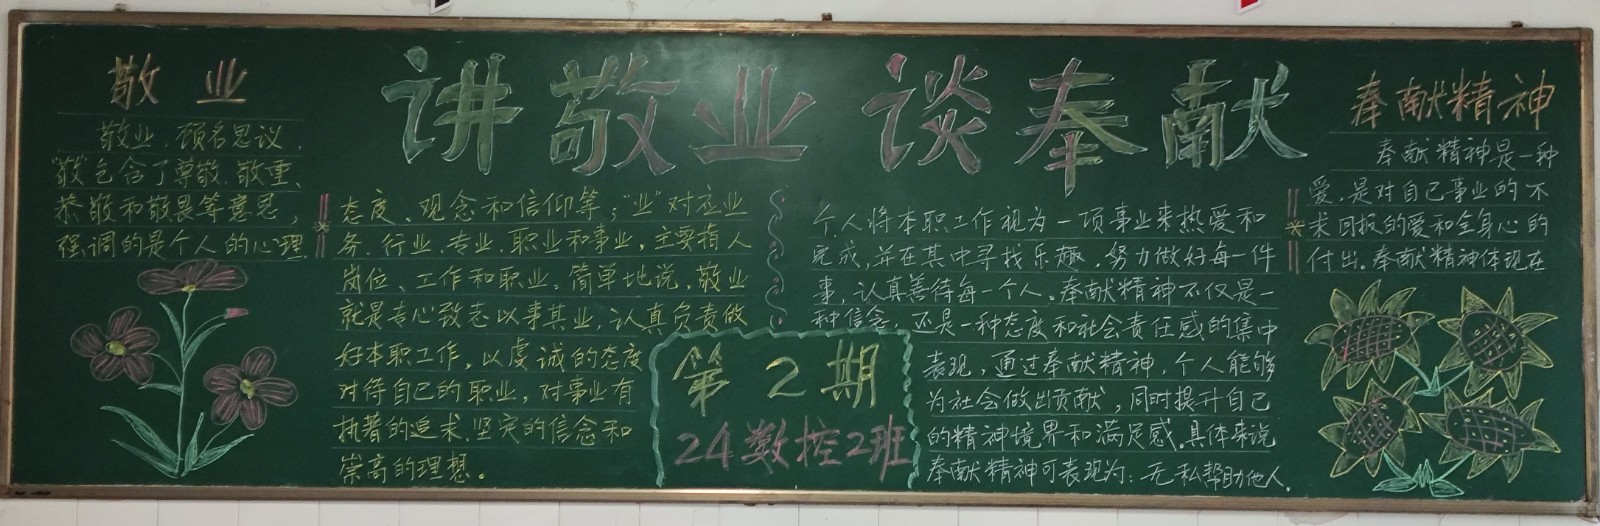 讲敬业 谈奉献
敬业
敬业,顾名思议,
"敬"包含了尊敬、敬重、
恭敬和敬畏等意思,
强调的是个人的心理
态度、观念和信仰等;"业"对应业
务、行业、专业、职业和事业,主要指人
岗位、工作和职业。简单地说,敬业
就是专心致志以事其业,认真负责做
好本职工作,以虔诚的态度
对待自己的职业,对事业有
执著的追求、坚定的信念和
崇高的理想。
第2期
24数控2班
奉献精神
奉献精神是一种
爱,是对自己事业的不
求回报的爱和全身心的
付出。奉献精神体现在
个人将本职工作视为一项事业来热爱和
完成,并在其中寻找乐趣,努力做好每一件
事,认真善待每一个人。奉献精神不仅是一
种信念,还是一种态度和社会责任感的集中
表现,通过奉献精神,个人能够
为社会做出贡献,同时提升自己
的精神境界和满足感。具体来说
奉献精神可表现为:无私帮助他人。